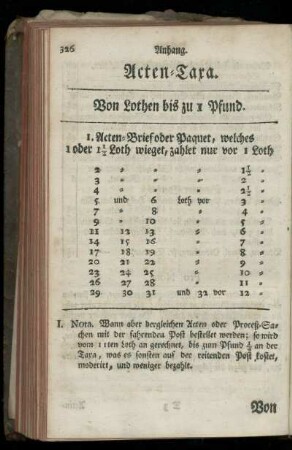 326 Anhang.
Acten-Taxa.
Von Lothen bis zu 1 Pfund.
1. Acten-Brief oder Paquet, welches
1 oder 1½ Loth wieget, zahlet nur vor 1 Loth
2 " " " " 1½ "
3 " " " " 2 "
4 " " " " 2½ "
5 und 6 Loth vor 3 "
7 " 8 " " 4 "
9 " 10 " " 5 "
11 12 13 " " 6 "
14 15 16 " " 7 "
17 18 19 " " 8 "
20 21 22 " " 9 "
23 24 25 " " 10 "
26 27 28 " " 11 "
29 30 31 und 32 vor 12 "
I. NOTA. Wann aber dergleichen Acten oder Proceß-Sa-
chen mit der fahrenden Post bestellet werden; so wird
vom 11ten Loth an gerechnet, bis zum Pfund ⅓ an der
Taxa, was es sonsten auf der reitenden Post kostet,
moderirt, und weniger bezahlt.
Von